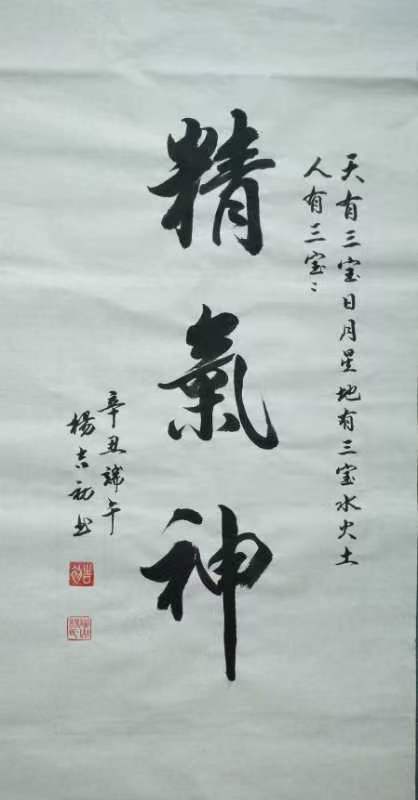 天有三宝日月星地有三宝水火土
人有三宝：
精氣神
辛丑端午
楊吉初书